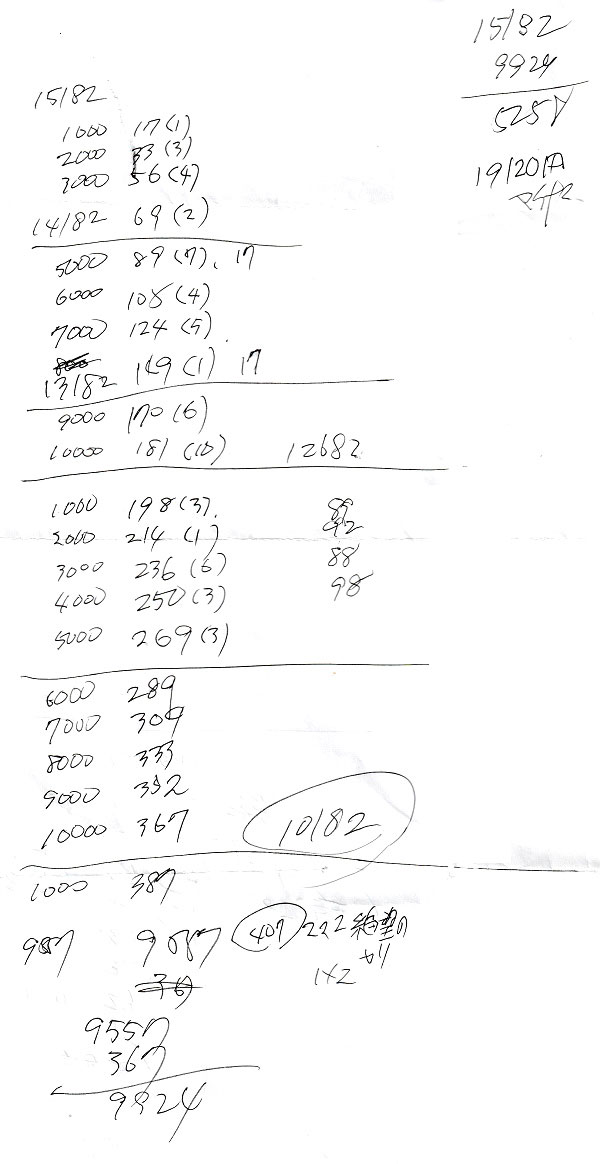 15182
9924
5258
15182
1000 17(1)
2000 33(3)
3000 56(4)
14182 69(2)
5000 89(7), 17
6000 108(4)
7000 124(5)
13182 149(1) 17
9000 170(6)
10000 181(10) 12682
1000 198(3)
2000 214(1)
3000 236(6)
4000 250(3)
5000 269(3)
89
92
88
98
6000 289
7000 309
8000 333
9000 352
10000 367 10182
1000 387
987 9587 407 222 絶望の
1×2
9557
367
9924